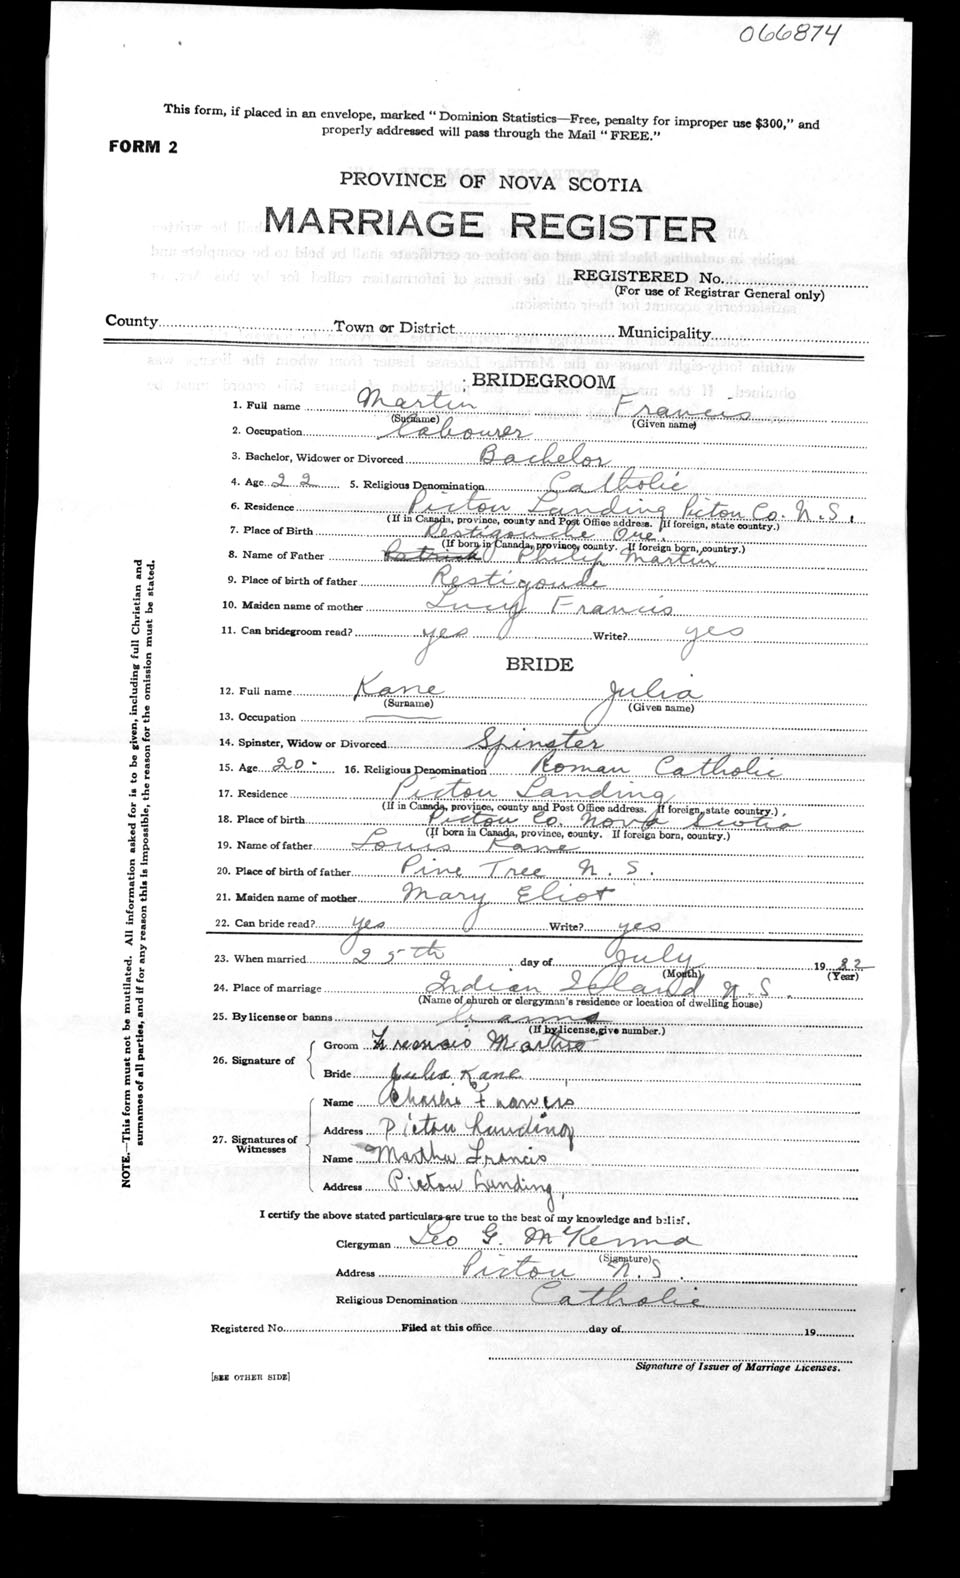 066874
This form, if placed in an envelope, marked "Dominion Statistics—Free, penalty for improper use $300," and
properly addressed will pass through the Mail "FREE."
FORM 2
PROVINCE OF NOVA SCOTIA
MARRIAGE REGISTER
REGISTERED No.
(For use of Registrar General only)
County Town or District Municipality
BRIDEGROOM
1. Full name Martin Francis
(Surname) (Given name)
2. Occupation Labourer
3. Bachelor, Widower or Divorced Bachelor
4. Age 22 5. Religious Denomination Catholic
6. Residence Pictou Landing Pictou Co. N.S.
(If in Canada, province, county and Post Office address. If foreign, state country.)
7. Place of Birth Restigouche Que.
(If born in Canada, province, county. If foreign born, country.)
8. Name of Father Patrick Philip Martin
9. Place of birth of father Restigouche
10. Maiden name of mother Lucy Francis
11. Can bridegroom read? yes Write? yes
BRIDE
12. Full name Kane Julia
(Surname) (Given name)
13. Occupation
14. Spinster, Widow or Divorced Spinster
15. Age 20 16. Religious Denomination Roman Catholic
17. Residence Pictou Landing
(If in Canada, province, county and Post Office address. If foreign, state country.)
18. Place of birth Pictou Co. Nova Scotia
(If born in Canada, province, county. If foreign born, country.)
19. Name of father Louis Kane
20. Place of birth of father Pine Tree N.S.
21. Maiden name of mother Mary Eliot
22. Can bride read? yes Write? yes
23. When married 25th day of July 19
(Month) (Year)
24. Place of marriage Indian Island N.S.
(Name of church or clergyman's residence or location of dwelling house)
25. By license or banns banns
(If by license, give number.)
26. Signature of
Groom Francis Martin
Bride Julia Kane
27. Signatures of Witnesses
Name Charlie Francis
Address Pictou Landing
Name Martha Francis
Address Pictou Landing,
I certify the above stated particulars are true to the best of my knowledge and belief.
Clergyman Leo G. McKenna
(Signature)
Address Pictou N.S.
Religious Denomination Catholic
Registered No. Filed at this office day of 19
Signature of Issuer of Marriage Licenses.
[SEE OTHER SIDE]
NOTE.—This form must not be mutilated. All information asked for is to be given, including full Christian and
surnames of all parties, and if for any reason this is impossible, the reason for the omission must be stated.